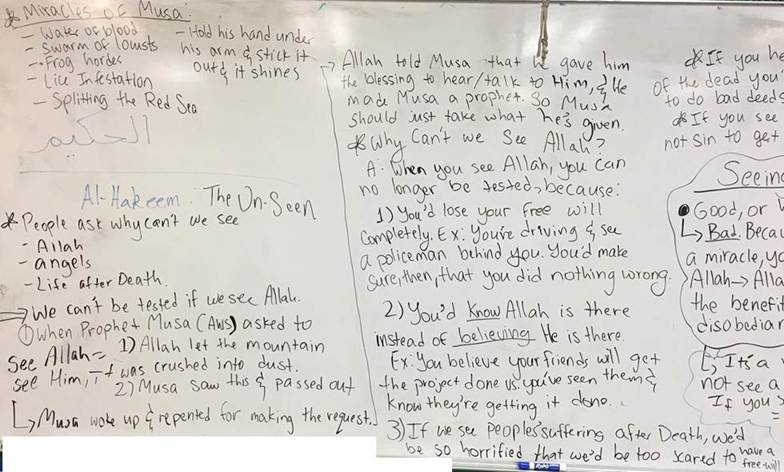 * Miracles of Musa:
- Water of blood
- Swarm of lousts
- Frog hordes
- Lice Infestation
- Splitting the Red Sea
- Hold his hand under
his arm & stick it
out & it shines
الحكيم
Al-Hakeem: The Un-Seen
* People ask why can't we see
- Allah
- angels
- Life after Death.
⇒ We can't be tested if we see Allah.
① When Prophet Musa (AWS) asked to
see Allah= 1) Allah let the mountain
see Him, it was crushed into dust.
2) Musa saw this & passed out
↳ Musa woke up & repented for making the request.
→ Allah told Musa that He gave him
the blessing to hear/talk to Him, & He
made Musa a prophet. So Musa
should just take what he's given.
* Why Can't we See Allah?
A: When you see Allah, you can
no longer be tested, because:
1) You'd lose your free will
completely. Ex: You're driving & see
a policeman behind you. You'd make
sure, then, that you did nothing wrong.
2) You'd Know Allah is there
instead of believing He is there.
Ex: You believe your friends will get
the project done vs. you've seen them &
know they're getting it done.
3) If we see peoples' suffering after Death, we'd
be so horrified that we'd be too scared to have a
free-will
* If you he
of the dead you
to do bad deeds
* If you see
not sin to get
Seeing
• Good, or
↳ Bad. Becau
a miracle, yo
Allah → Alla
the benefit
disobedian
↳ It's a
not see a
If you s
=